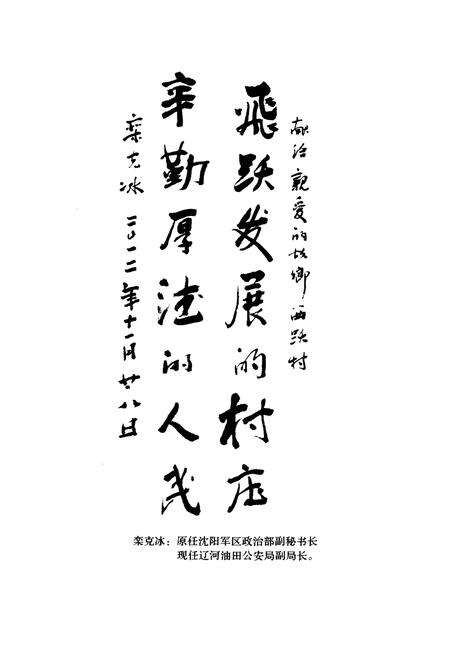 献给亲爱的故乡西跃村
飛跃发展的村庄
辛勤厚德的人民
栾克冰 二〇一二年十一月廿八日
栾克冰：原任沈阳军区政治部副秘书长
现任辽河油田公安局副局长。